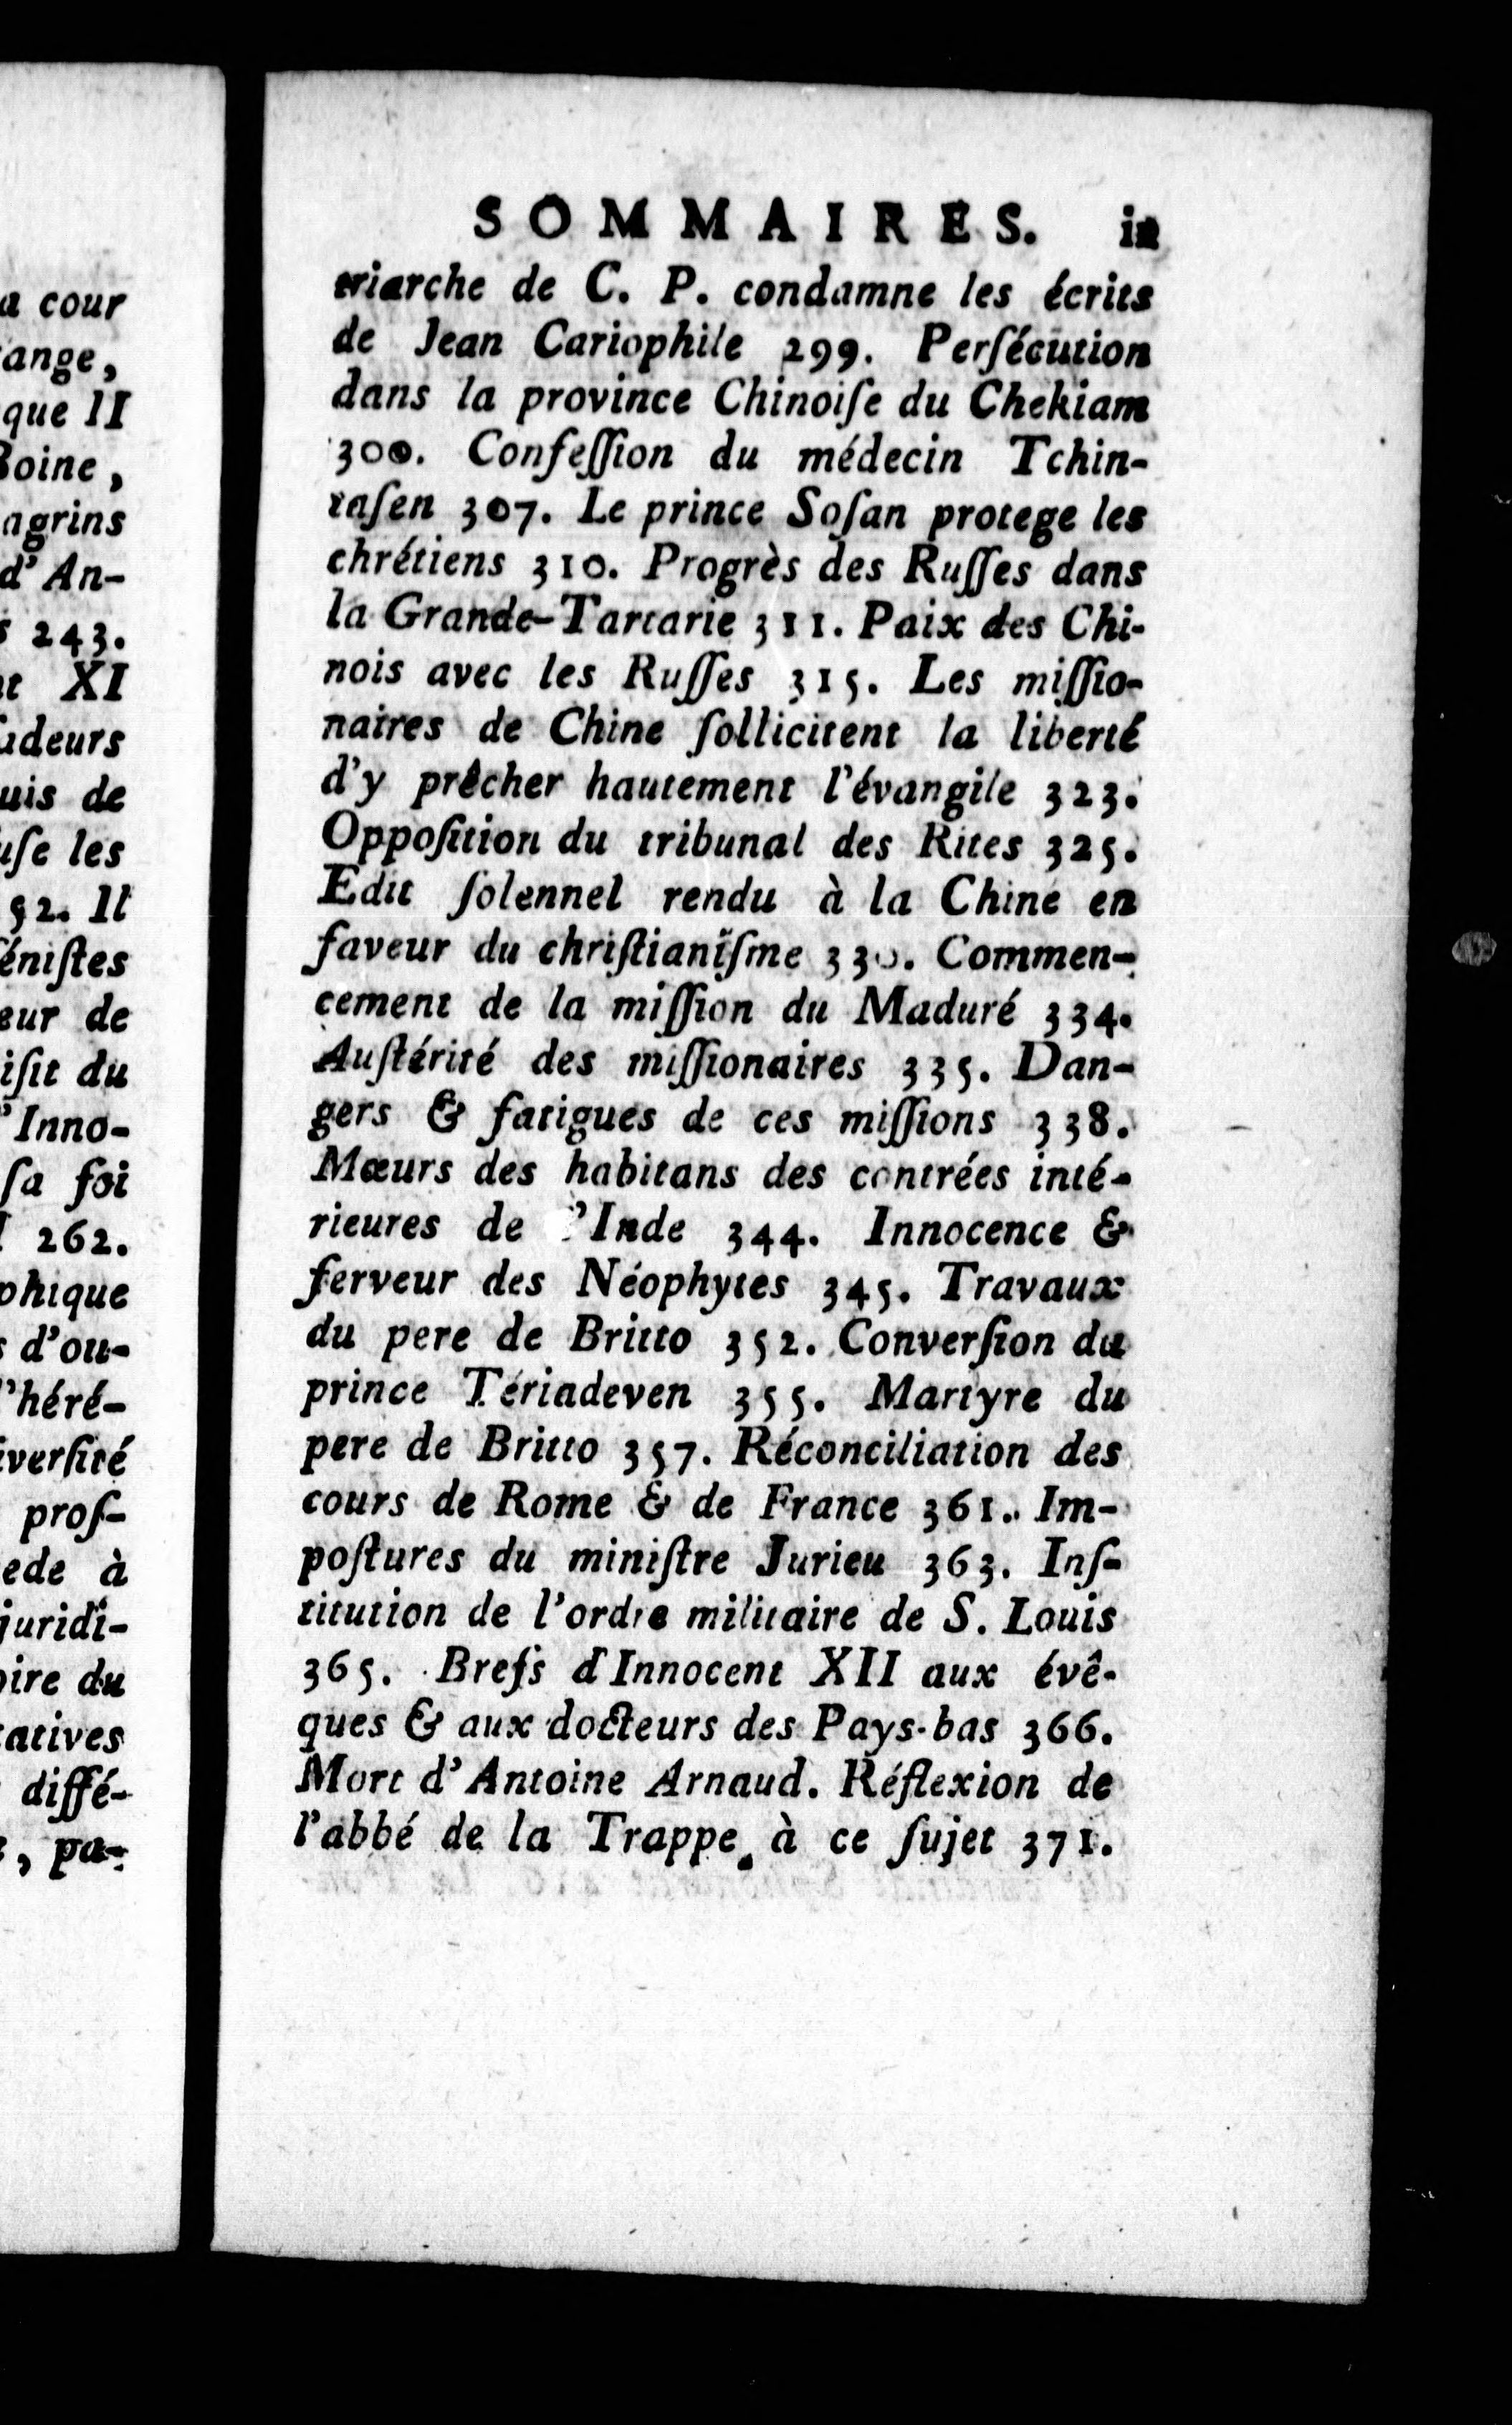 a cour
ange,
que II
Boine,
agrins
d'An-
243.
XI
adeurs
uis de
ſe les
52. Il
éniſtes
eur de
iſit du
'Inno-
ſa foi
262.
phique
d'ou-
'héré-
iverſité
proſ-
ede à
juridi-
oire du
tatives
diffé-
, pa-
SOMMAIRES.
triarche de C. P. condamne les écrits
de Jean Cariophile 299. Perſécution
dans la province Chinoiſe du Chekiam
300. Confeſſion du médecin Tchin-
taſen 307. Le prince Soſan protege les
chrétiens 310. Progrès des Ruſſes dans
la Grande-Tartarie 311. Paix des Chi-
nois avec les Ruſſes 315. Les miſſio-
naires de Chine ſollicitent la liberté
d'y prêcher hautement l'évangile 323.
Oppoſition du tribunal des Rites 325.
Edit ſolennel rendu à la Chine en
faveur du chriſtianiſme 330. Commen-
cement de la miſſion du Maduré 334.
Auſtérité des miſſionaires 335. Dan-
gers & fatigues de ces miſſions 338.
Mœurs des habitans des contrées inté-
rieures de l'Inde 344. Innocence &
ferveur des Néophytes 345. Travaux
du pere de Britto 352. Converſion du
prince Tériadeven 355. Martyre du
pere de Britto 357. Réconciliation des
cours de Rome & de France 361. Im-
poſtures du miniſtre Jurieu 363. Inſ-
titution de l'ordre militaire de S. Louis
365. Brefs d'Innocent XII aux évê-
ques & aux docteurs des Pays-bas 366.
Mort d'Antoine Arnaud. Réflexion de
l'abbé de la Trappe à ce ſujet 371.